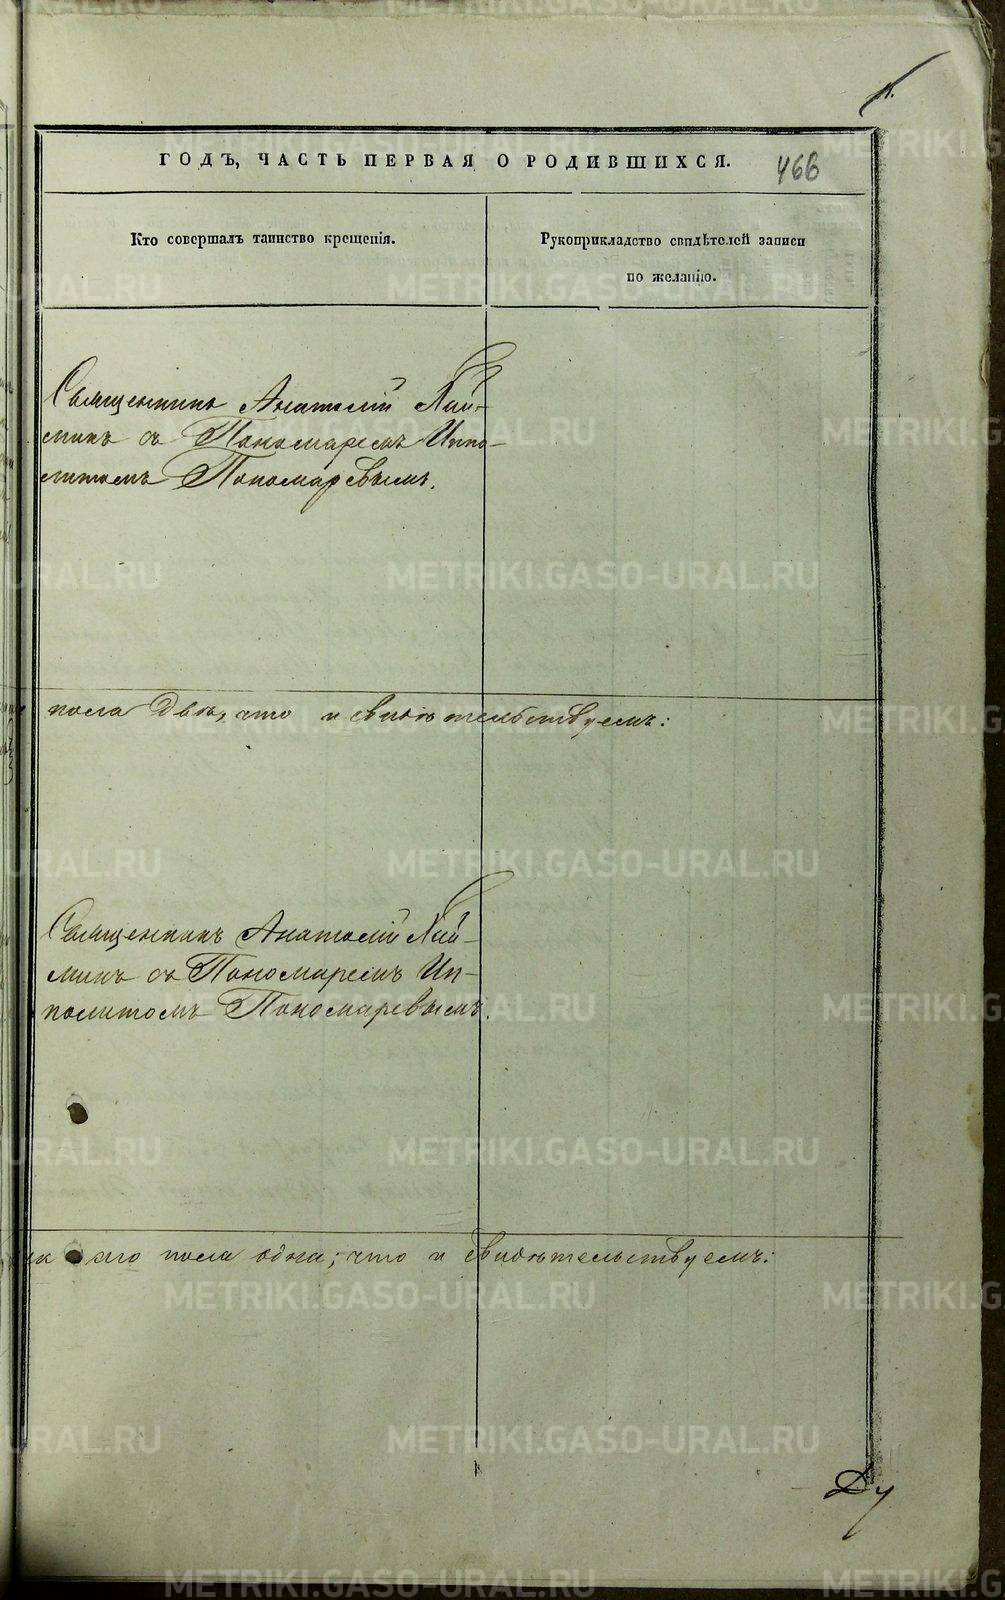 ГОДЪ, ЧАСТЬ ПЕРВАЯ О РОДИВШИХСЯ. 466
Кто совершалъ таинство крещенія.
Рукоприкладство свидѣтелей записи
по желанію.
Священникъ Анатолій Най-
минъ съ Пономаремъ Иппо-
литомъ Пономаревымъ.
пола два, что и свидѣтельствуемъ:
Священникъ Анатолій Най-
минъ съ Пономаремъ Ип-
политомъ Пономаревымъ.
пола одна; что и свидѣтельствуемъ:
METRIKI.GASO-URAL.RU